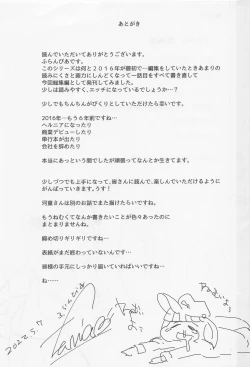 あとがき
読んでいただいてありがとうございます。
ふらんぴあです。
このシリーズは何と2016年が最初で一編集をしていたときあまりの
読みにくさと画力にしんどくなって一話目をすべて書き直して
今回総集編として発刊してみました。
少しは読みやすく、エッチになっているでしょうか…？
少しでもちんちんがぴくりとしていただけたら幸いです。
2016年…もう6年前ですね…
ヘルニアになったり
商業デビューしたり
単行本が出たり
会社を辞めたり
本当にあっという間でしたが頑張ってなんとか生きてます。
少しづつでも上手になって、皆さんに読んで、楽しんでいただけるように
がんばっていきます。うす！
河童さんは別のお話でまた描けたらいいですね。
もうねむくてなんか書きたいことが色々あったのに
まとまりませんね。
締め切りギリギリですね…
表紙がまだ終わっていないんです…
皆様の手元にしっかり届いていればいいですね…
ね……
2022.5.7